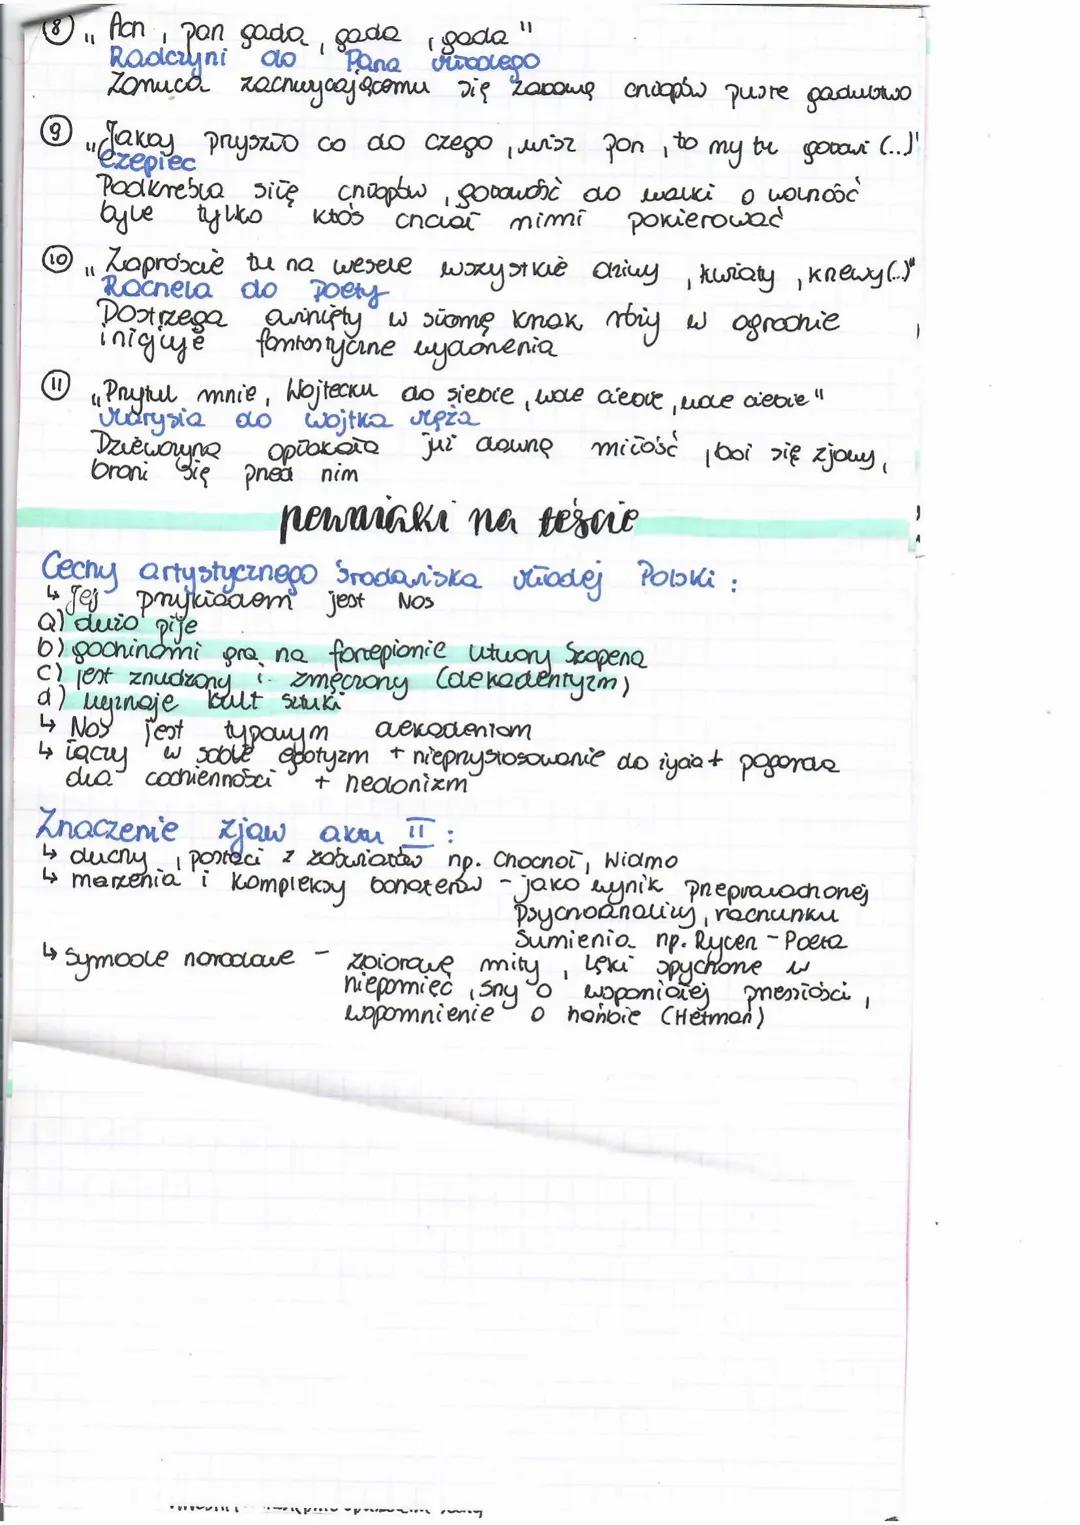 ⑧ „Ach, pan gada, gada, gada"
Radczyni do Pana Młodego
Zarzuca zachwycającemu się zabawą chłopów puste gadulstwo
⑨ „Jakby przyszło co do czego, wisz pon, to my tu gotowi (...)"
Czepiec
Podkreśla siłę chłopów, gotowość do walki o wolność
byle tylko ktoś chciał nimi pokierować
⑩ „Zaproście tu na wesele wszystkie dziwy, kwiaty, krzewy(...)"
Rachela do Poety
Dostrzega owinięty w słomę krzak róży w ogrodzie
inicjuje fantastyczne wydarzenia
⑪ „Przytul mnie, Wojtecku do siebie, wole ciebie, wole ciebie"
Marysia do Wojtka męża
Dziewczyna opłakała już dawną miłość, boi się zjawy,
broni się przed nim
pewniaki na teście
Cechy artystycznego środowiska Młodej Polski:
↳ Jej przykładem jest Nos
a) dużo pije
b) godzinami gra na fortepionie utwory Szopena
c) jest znudzony i zmęczony (dekadentyzm)
d) wyznaje kult sztuki
↳ Nos jest typowym dekadentem
↳ łączy w sobie egotyzm + nieprzystosowanie do życia + pogarda
dla codzienności + hedonizm
Znaczenie zjaw aktu II:
↳ duchy, postaci z zaświatów np. Chochoł, Widmo
↳ marzenia i kompleksy bohaterów - jako wynik przeprowadzonej
psychoanalizy, rachunku
sumienia np. Rycerz - Poeta
↳ symbole narodowe - zbiorowe mity, lęki spychone w
niepamięć, sny o wspaniałej przeszłości,
wspomnienie o hańbie (Hetman)